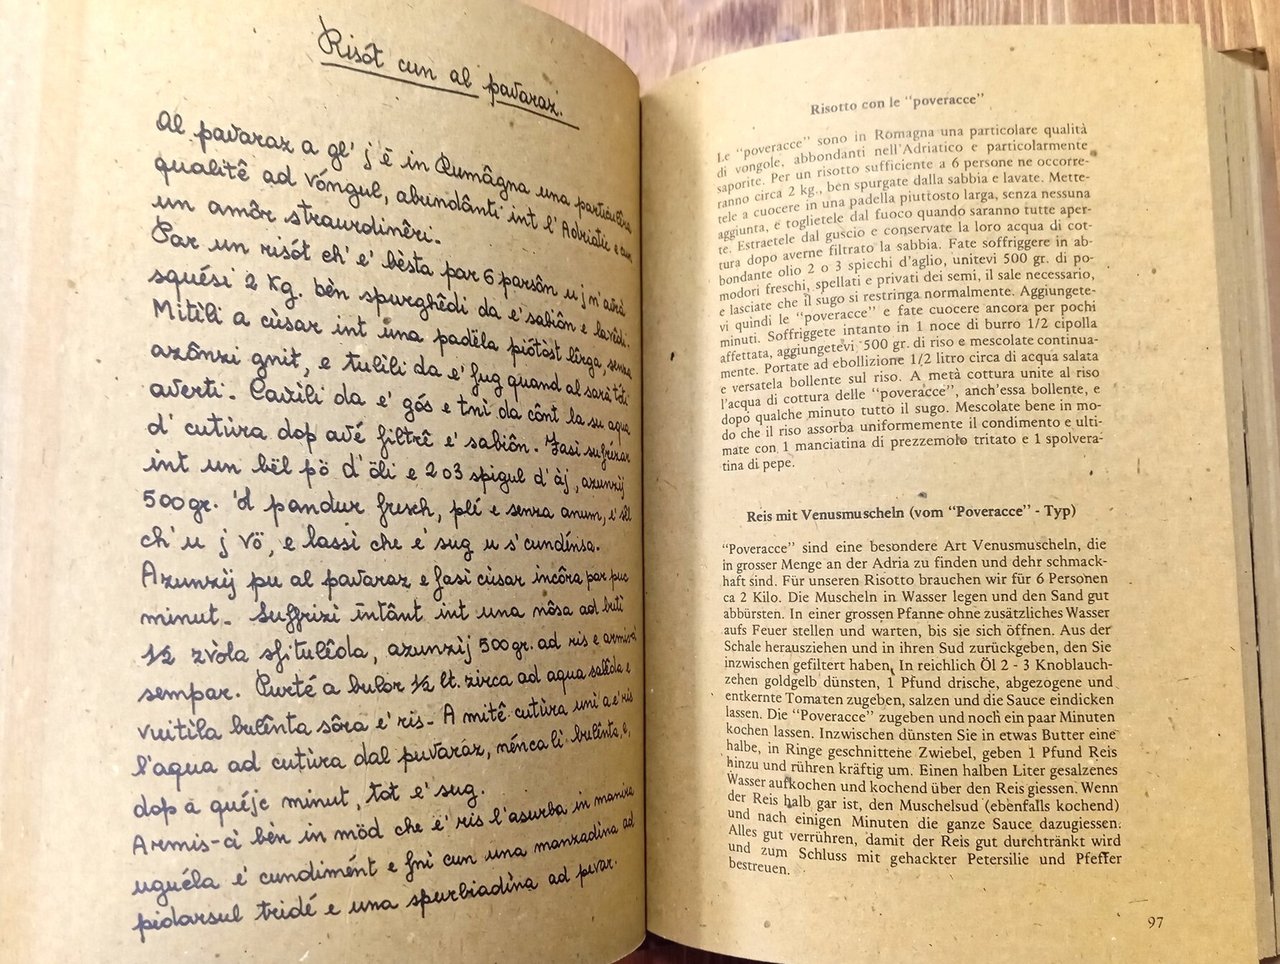 Risót cun al pavaraz.
Al pavaraz a gl' j'é in Rumâgna una particulêra
qualitê ad vóngul, abundânti int l'Adriatic e cun
un amôr straurdinêri.
Par un risót ch' e' bèsta par 6 parsôn u j n' avrà
squési 2 Kg. bèn spurghêdi da e' sabiôn e lavêdi.
Mitìli a cùsar int una padëla piótòst lêrga, senza
azônzi gnit, e tulìli da e' fug quand al sarà tóti
averti. Cavìli da e' gós e tnì da cônt la su aqua
d' cutùra dop avé filtrê e' sabiôn. Fasì sufrézar
int un bël pö d' öli e 2 o 3 spigul d' àj, azunzij
500 gr. 'd pandur fresch, plé e senza anum, e' sêl
ch' u j vö, e lassì che e' sug u s' cundínsa.
Azunzij pu al pavaraz e fasì cùsar incôra par puc
minut. Suffrizì intânt int una nôsa ad butì
½ zvóla sfitulêda, azunzìj 500 gr. ad ris e armisì
sempar. Purté a bulor ½ lt. zirca ad aqua salêda e
vuitìla bulênta sôra e' ris. A mitê cutùra unì a e' ris
l'aqua ad cutùra dal puvaraz, nénca lì bulênta, e,
dop a quéjc minut, tot e' sug.
Armis-cì bèn in möd che e' ris l'asurba in manira
uguéla e' cundimént e fnì cun una manzadìna ad
pidarsul tridé e una spurbiadìna ad pevar.
Risotto con le "poveracce"
Le "poveracce" sono in Romagna una particolare qualità
di vongole, abbondanti nell'Adriatico e particolarmente
saporite. Per un risotto sufficiente a 6 persone ne occorre-
ranno circa 2 kg., ben spurgate dalla sabbia e lavate. Mette-
tele a cuocere in una padella piuttosto larga, senza nessuna
aggiunta, e toglietele dal fuoco quando saranno tutte aper-
te. Estraetele dal guscio e conservate la loro acqua di cot-
tura dopo averne filtrato la sabbia. Fate soffriggere in ab-
bondante olio 2 o 3 spicchi d'aglio, unitevi 500 gr. di po-
modori freschi, spellati e privati dei semi, il sale necessario,
e lasciate che il sugo si restringa normalmente. Aggiungete-
vi quindi le "poveracce" e fate cuocere ancora per pochi
minuti. Soffriggete intanto in 1 noce di burro 1/2 cipolla
affettata, aggiungetevi 500 gr. di riso e mescolate continua-
mente. Portate ad ebollizione 1/2 litro circa di acqua salata
e versatela bollente sul riso. A metà cottura unite al riso
l'acqua di cottura delle "poveracce", anch'essa bollente, e
dopo qualche minuto tutto il sugo. Mescolate bene in mo-
do che il riso assorba uniformemente il condimento e ulti-
mate con 1 manciatina di prezzemolo tritato e 1 spolvera-
tina di pepe.
Reis mit Venusmuscheln (vom "Poveracce" - Typ)
"Poveracce" sind eine besondere Art Venusmuscheln, die
in grosser Menge an der Adria zu finden und dehr schmack-
haft sind. Für unseren Risotto brauchen wir für 6 Personen
ca 2 Kilo. Die Muscheln in Wasser legen und den Sand gut
abbürsten. In einer grossen Pfanne ohne zusätzliches Wasser
aufs Feuer stellen und warten, bis sie sich öffnen. Aus der
Schale herausziehen und in ihren Sud zurückgeben, den Sie
inzwischen gefiltert haben. In reichlich Öl 2 - 3 Knoblauch-
zehen goldgelb dünsten, 1 Pfund drische, abgezogene und
entkernte Tomaten zugeben, salzen und die Sauce eindicken
lassen. Die "Poveracce" zugeben und noch ein paar Minuten
kochen lassen. Inzwischen dünsten Sie in etwas Butter eine
halbe, in Ringe geschnittene Zwiebel, geben 1 Pfund Reis
hinzu und rühren kräftig um. Einen halben Liter gesalzenes
Wasser aufkochen und kochend über den Reis giessen. Wenn
der Reis halb gar ist, den Muschelsud (ebenfalls kochend)
und nach einigen Minuten die ganze Sauce dazugiessen.
Alles gut verrühren, damit der Reis gut durchtränkt wird
und zum Schluss mit gehackter Petersilie und Pfeffer
bestreuen.
97